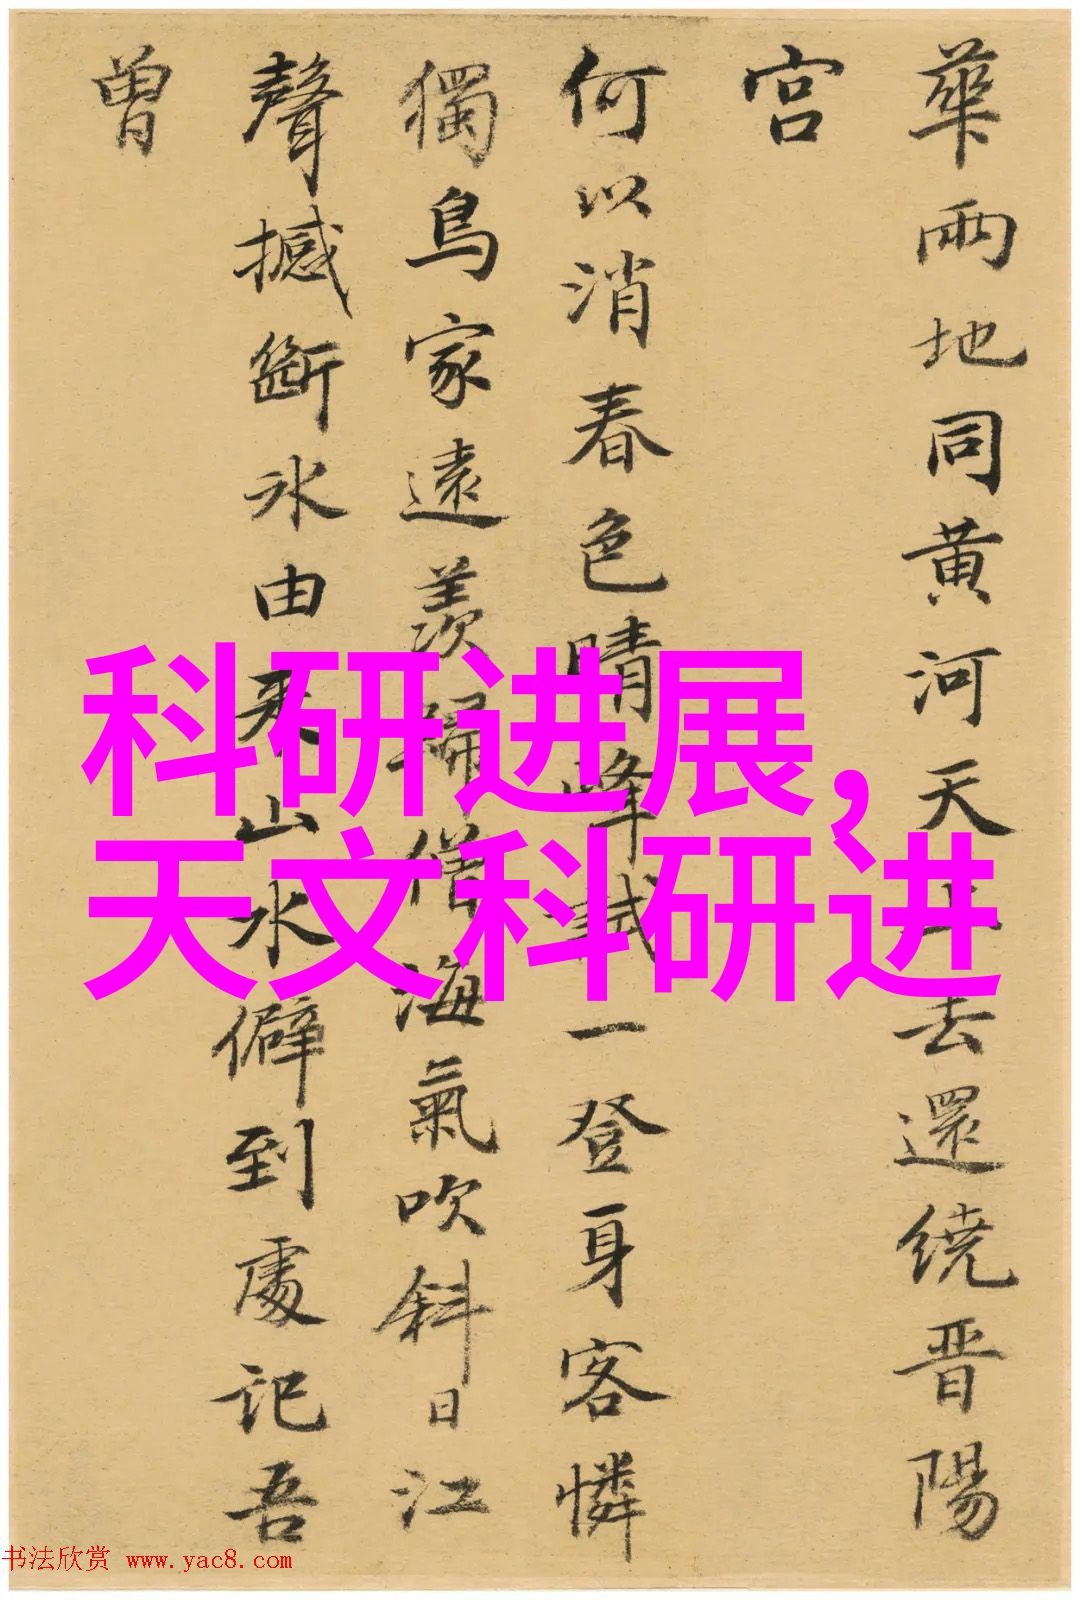 華兩地同黄河天上去還繞晋陽
宫
何以消春色晴峰試一登身客憐
獨鳥家遠羨歸僧海氣吹斜日江
聲撼斷冰由来山水僻到處記吾
曾
科研进展，
天文科研进
书法欣赏 www.yac8.com